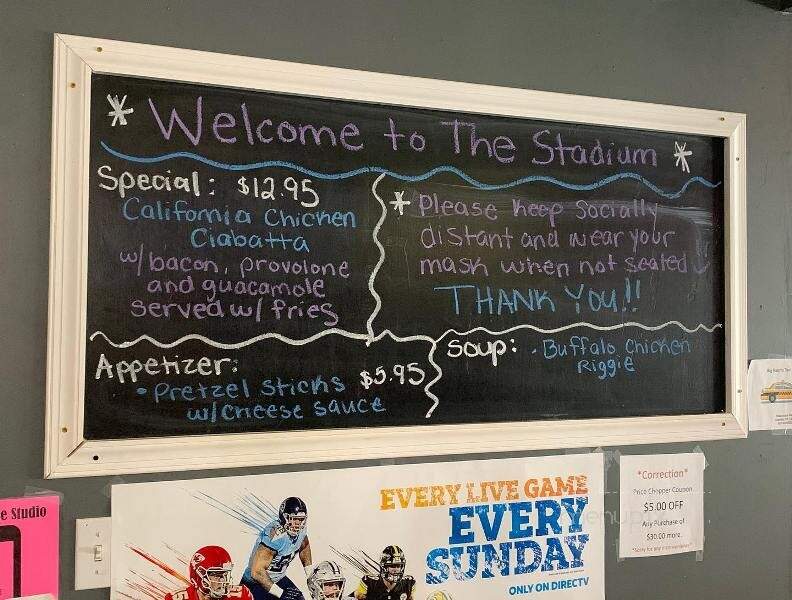 * Welcome to The Stadium *
Special: $12.95
California Chicken
Ciabatta
w/bacon, provolone
and guacamole
served w/ fries
* Please keep socially
distant and wear your
mask when not seated
THANK YOU!!
Appetizer:
• Pretzel Sticks $5.95
w/cheese sauce
Soup: • Buffalo Chicken
Riggie
e Studio
EVERY LIVE GAME
EVERY
SUNDAY
ONLY ON DIRECTV
*Correction*
Price Chopper Coupon
$5.00 OFF
Any Purchase of
$30.00 more.
*Sorry for any inconvenience*